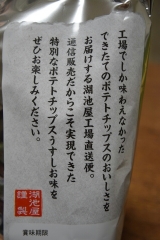 工場でしか味わえなかった
できたてのポテトチップスのおいしさを
お届けする湖池屋工場直送便。
通信販売だからこそ実現できた
特別なポテトチップスうすしお味を
ぜひお楽しみください。
湖池屋
謹製
賞味期限